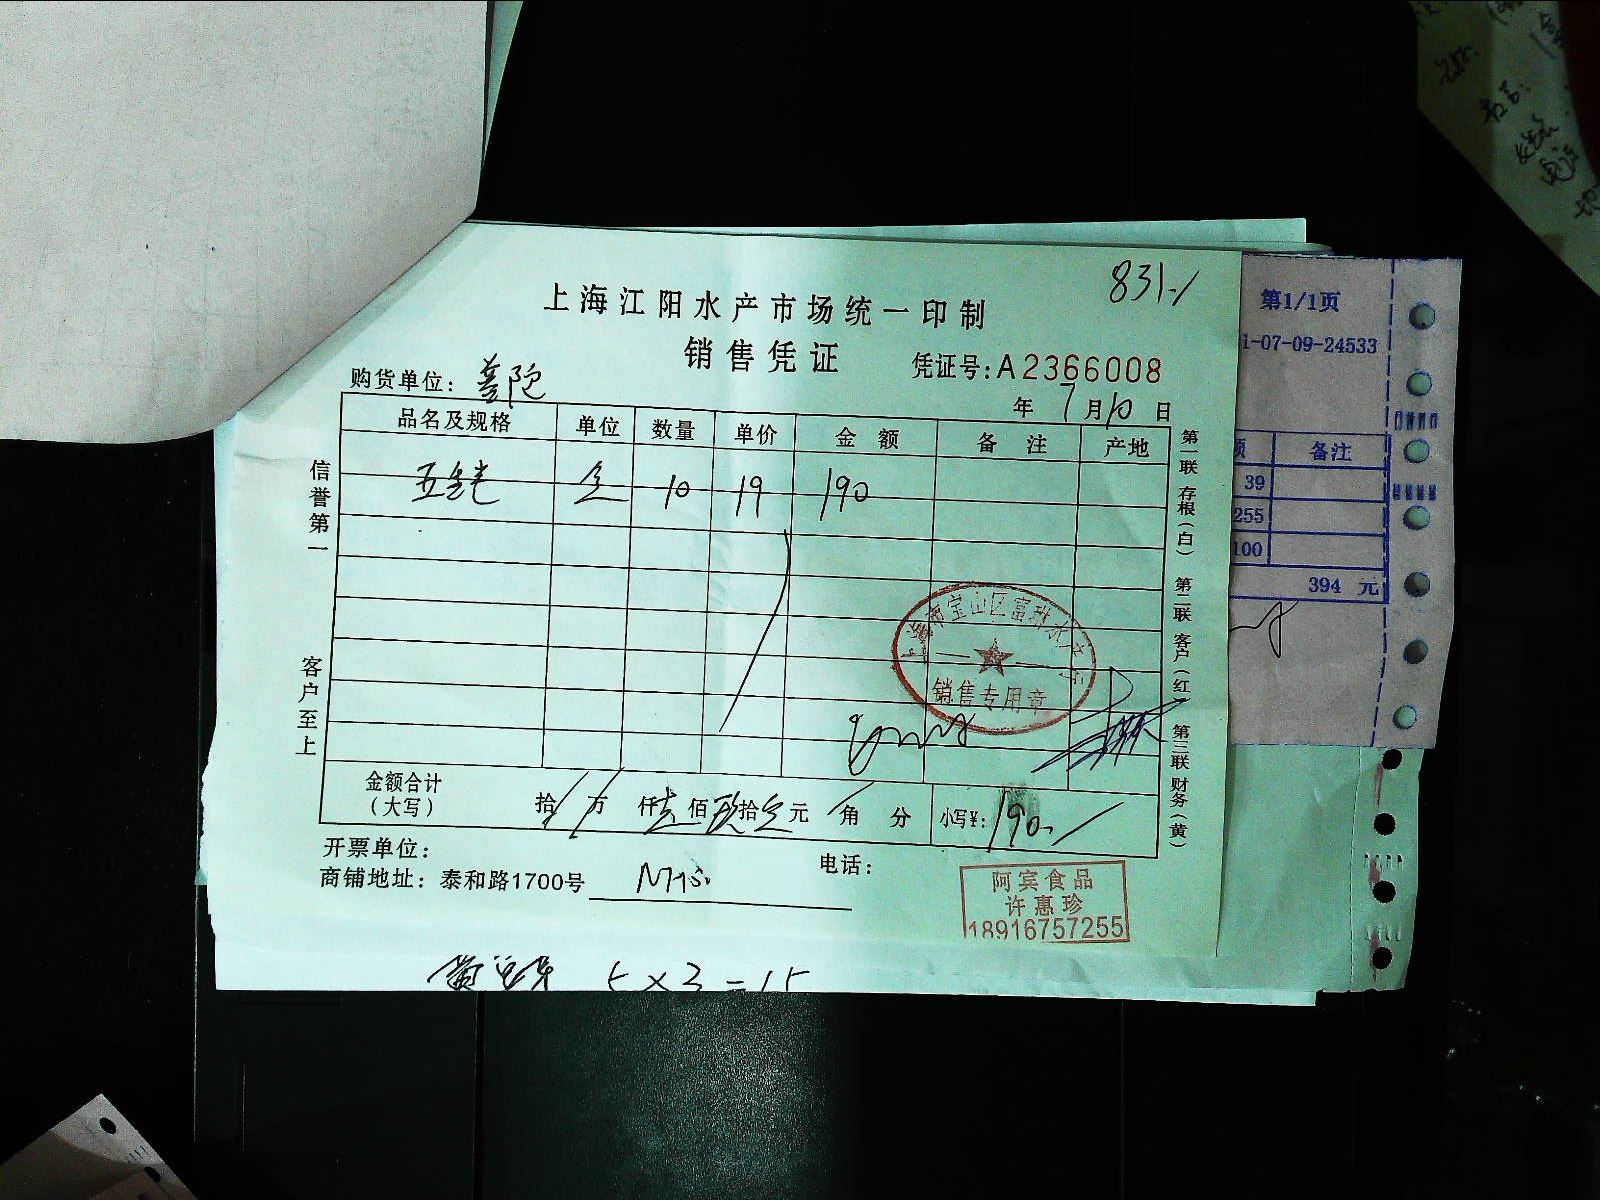 831.-/
上海江阳水产市场统一印制
销售凭证
凭证号:A2366008
购货单位:
年 7 月 10 日
品名及规格 单位 数量 单价 金额 备注 产地
10 19 190
信誉第一
客户至上
第一联 存根(白) 第二联 客户(红) 第三联 财务(黄)
上海市宝山区富琳水产行
销售专用章
金额合计(大写) 拾 万 仟壹佰玖拾元角分 小写¥:190.-
开票单位:
电话:
商铺地址:泰和路1700号
阿宾食品
许惠珍
18916757255
5×3=15
第1/1页
1-07-09-24533
额 备注
39
255
100
394 元